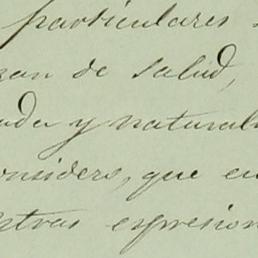 particulares
zan de salud,
ada y natural
onsidero, que en
stras espresion